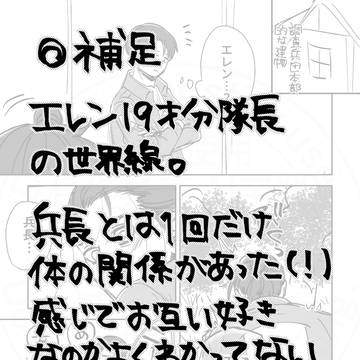 ◎補足
エレン19才分隊長
の世界線。
兵長とは1回だけ
体の関係があった(!)
感じでお互い好き
なのかよくわかってない
エレン…?
調査兵団本部
的な建物
兵長…